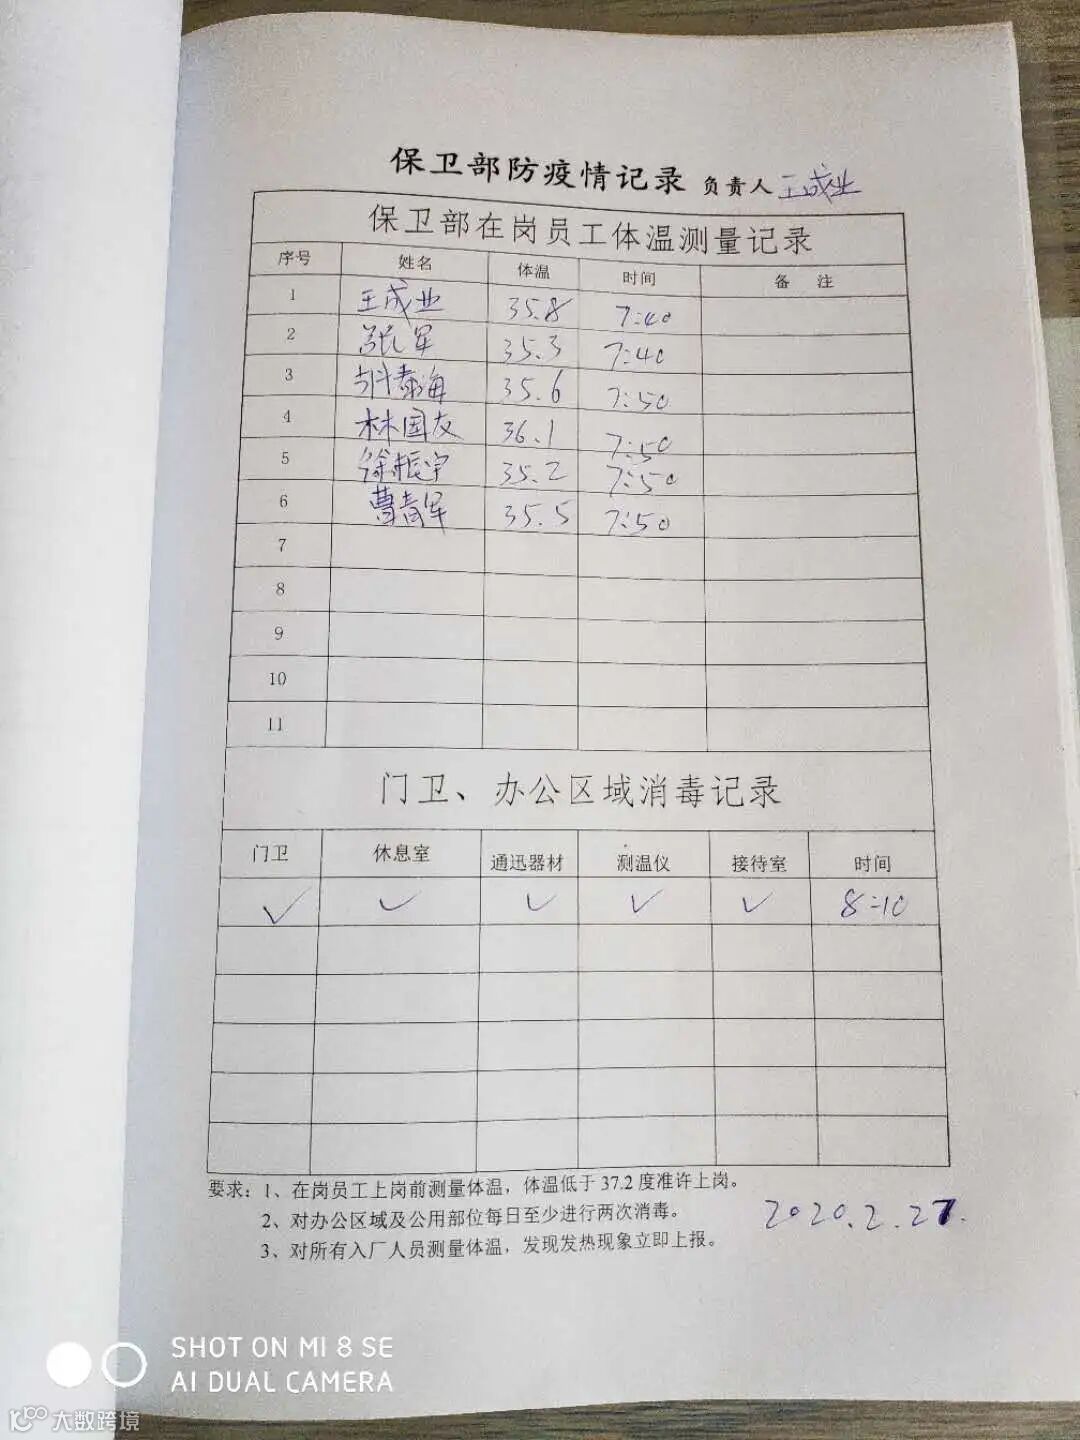 保卫部防疫情记录 负责人 王成业
保卫部在岗员工体温测量记录
序号 姓名 体温 时间 备 注
1 王成业 35.8 7:40
2 军 35.3 7:40
3 胡春海 35.6 7:50
4 林国友 36.1 7:50
5 徐振宇 35.2 7:50
6 曹青军 35.5 7:50
7
8
9
10
11
门卫、办公区域消毒记录
门卫 休息室 通迅器材 测温仪 接待室 时间
✓ ✓ ✓ ✓ ✓ 8:10
要求：1、在岗员工上岗前测量体温，体温低于 37.2 度准许上岗。
2、对办公区域及公用部位每日至少进行两次消毒。
3、对所有入厂人员测量体温，发现发热现象立即上报。
2020.2.27.
SHOT ON MI 8 SE
AI DUAL CAMERA
大数跨境